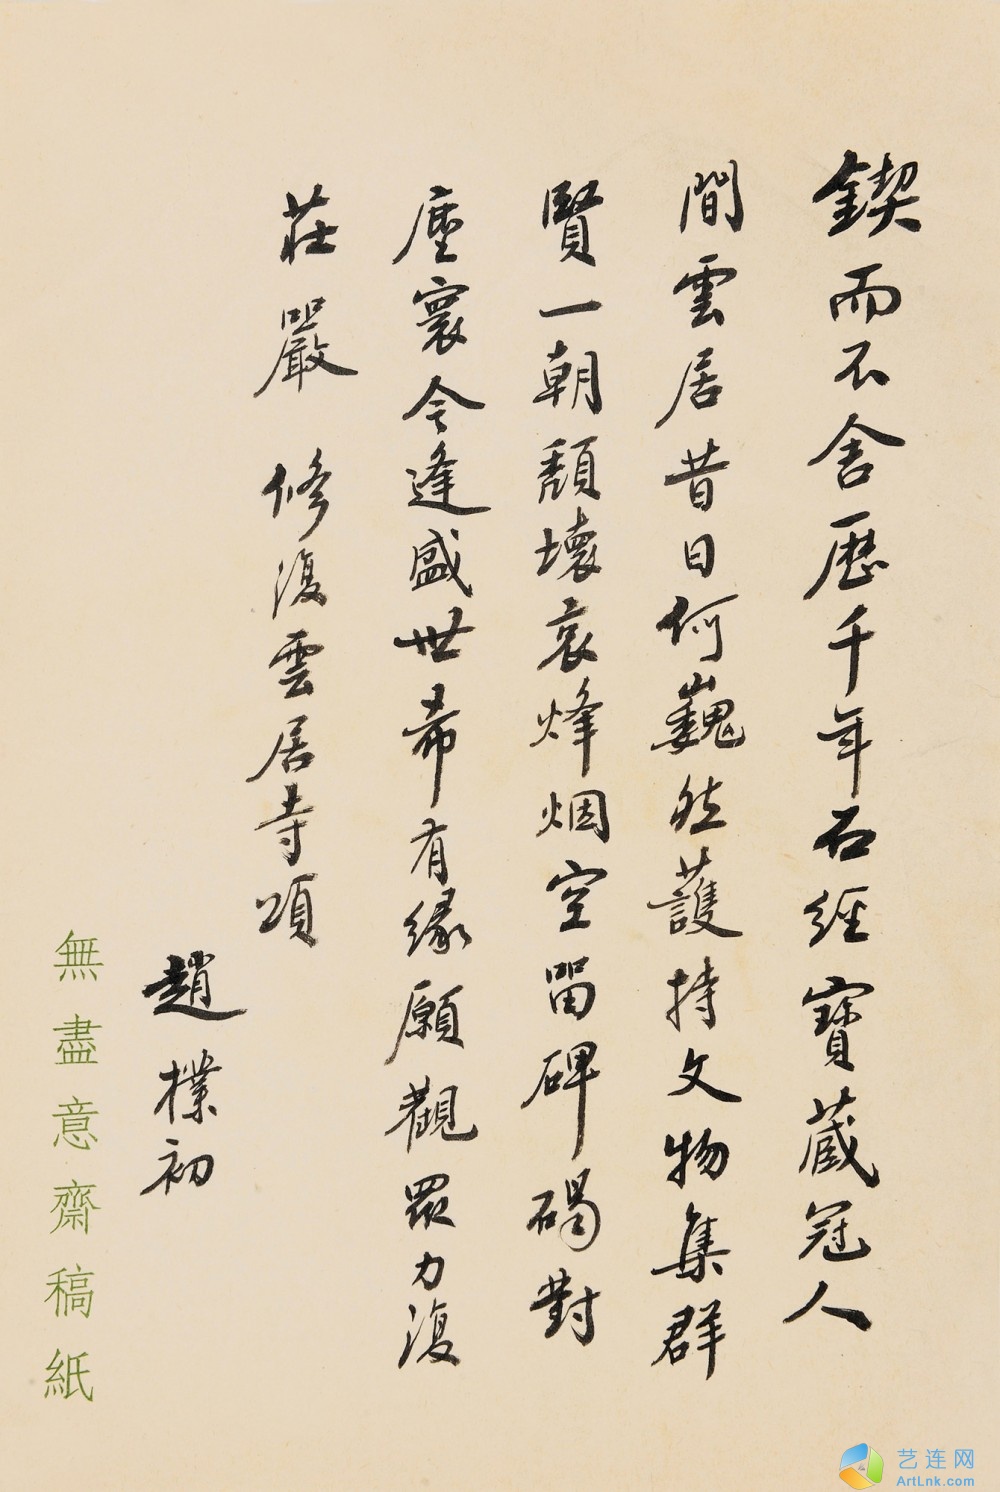 鍥而不舍歷千年石經寶藏冠人
間雲居昔日何巍然護持文物集群
賢一朝頹壞哀烽烟空留碑碣對
塵寰今逢盛世希有緣願觀眾力復
莊嚴 修復雲居寺頌
趙樸初
無盡意齋稿紙
艺连网
ArtLnk.com